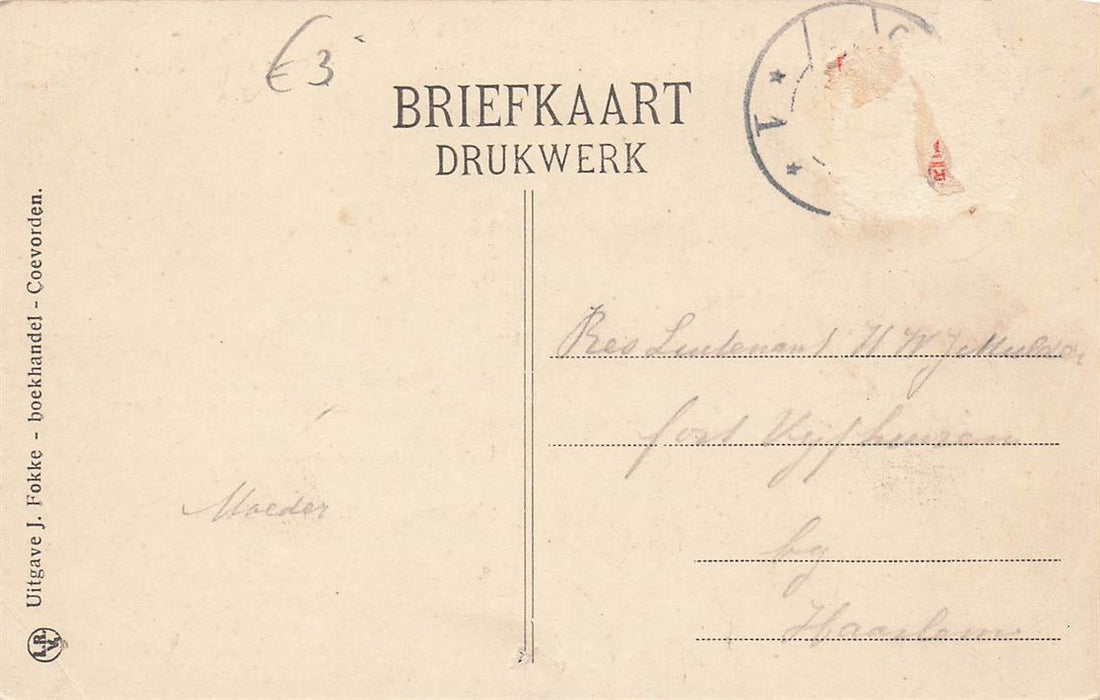 € 3
BRIEFKAART
DRUKWERK
1
Res Luitenant H W J Mulder
fort Vijfhuizen
by
Haarlem
Moeder
Uitgave J. Fokke - boekhandel - Coevorden.
L.R.
V.